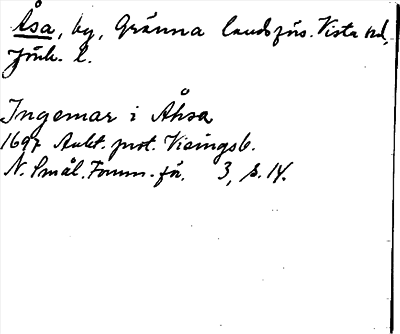 Åsa, by, Gränna landsförs. Vista hd,
Jönk. l.
Ingemar i Åhsa
1697 Aukt. prot. Visingsb.
N. Smål. Fornm.-för. 3, s. 14.